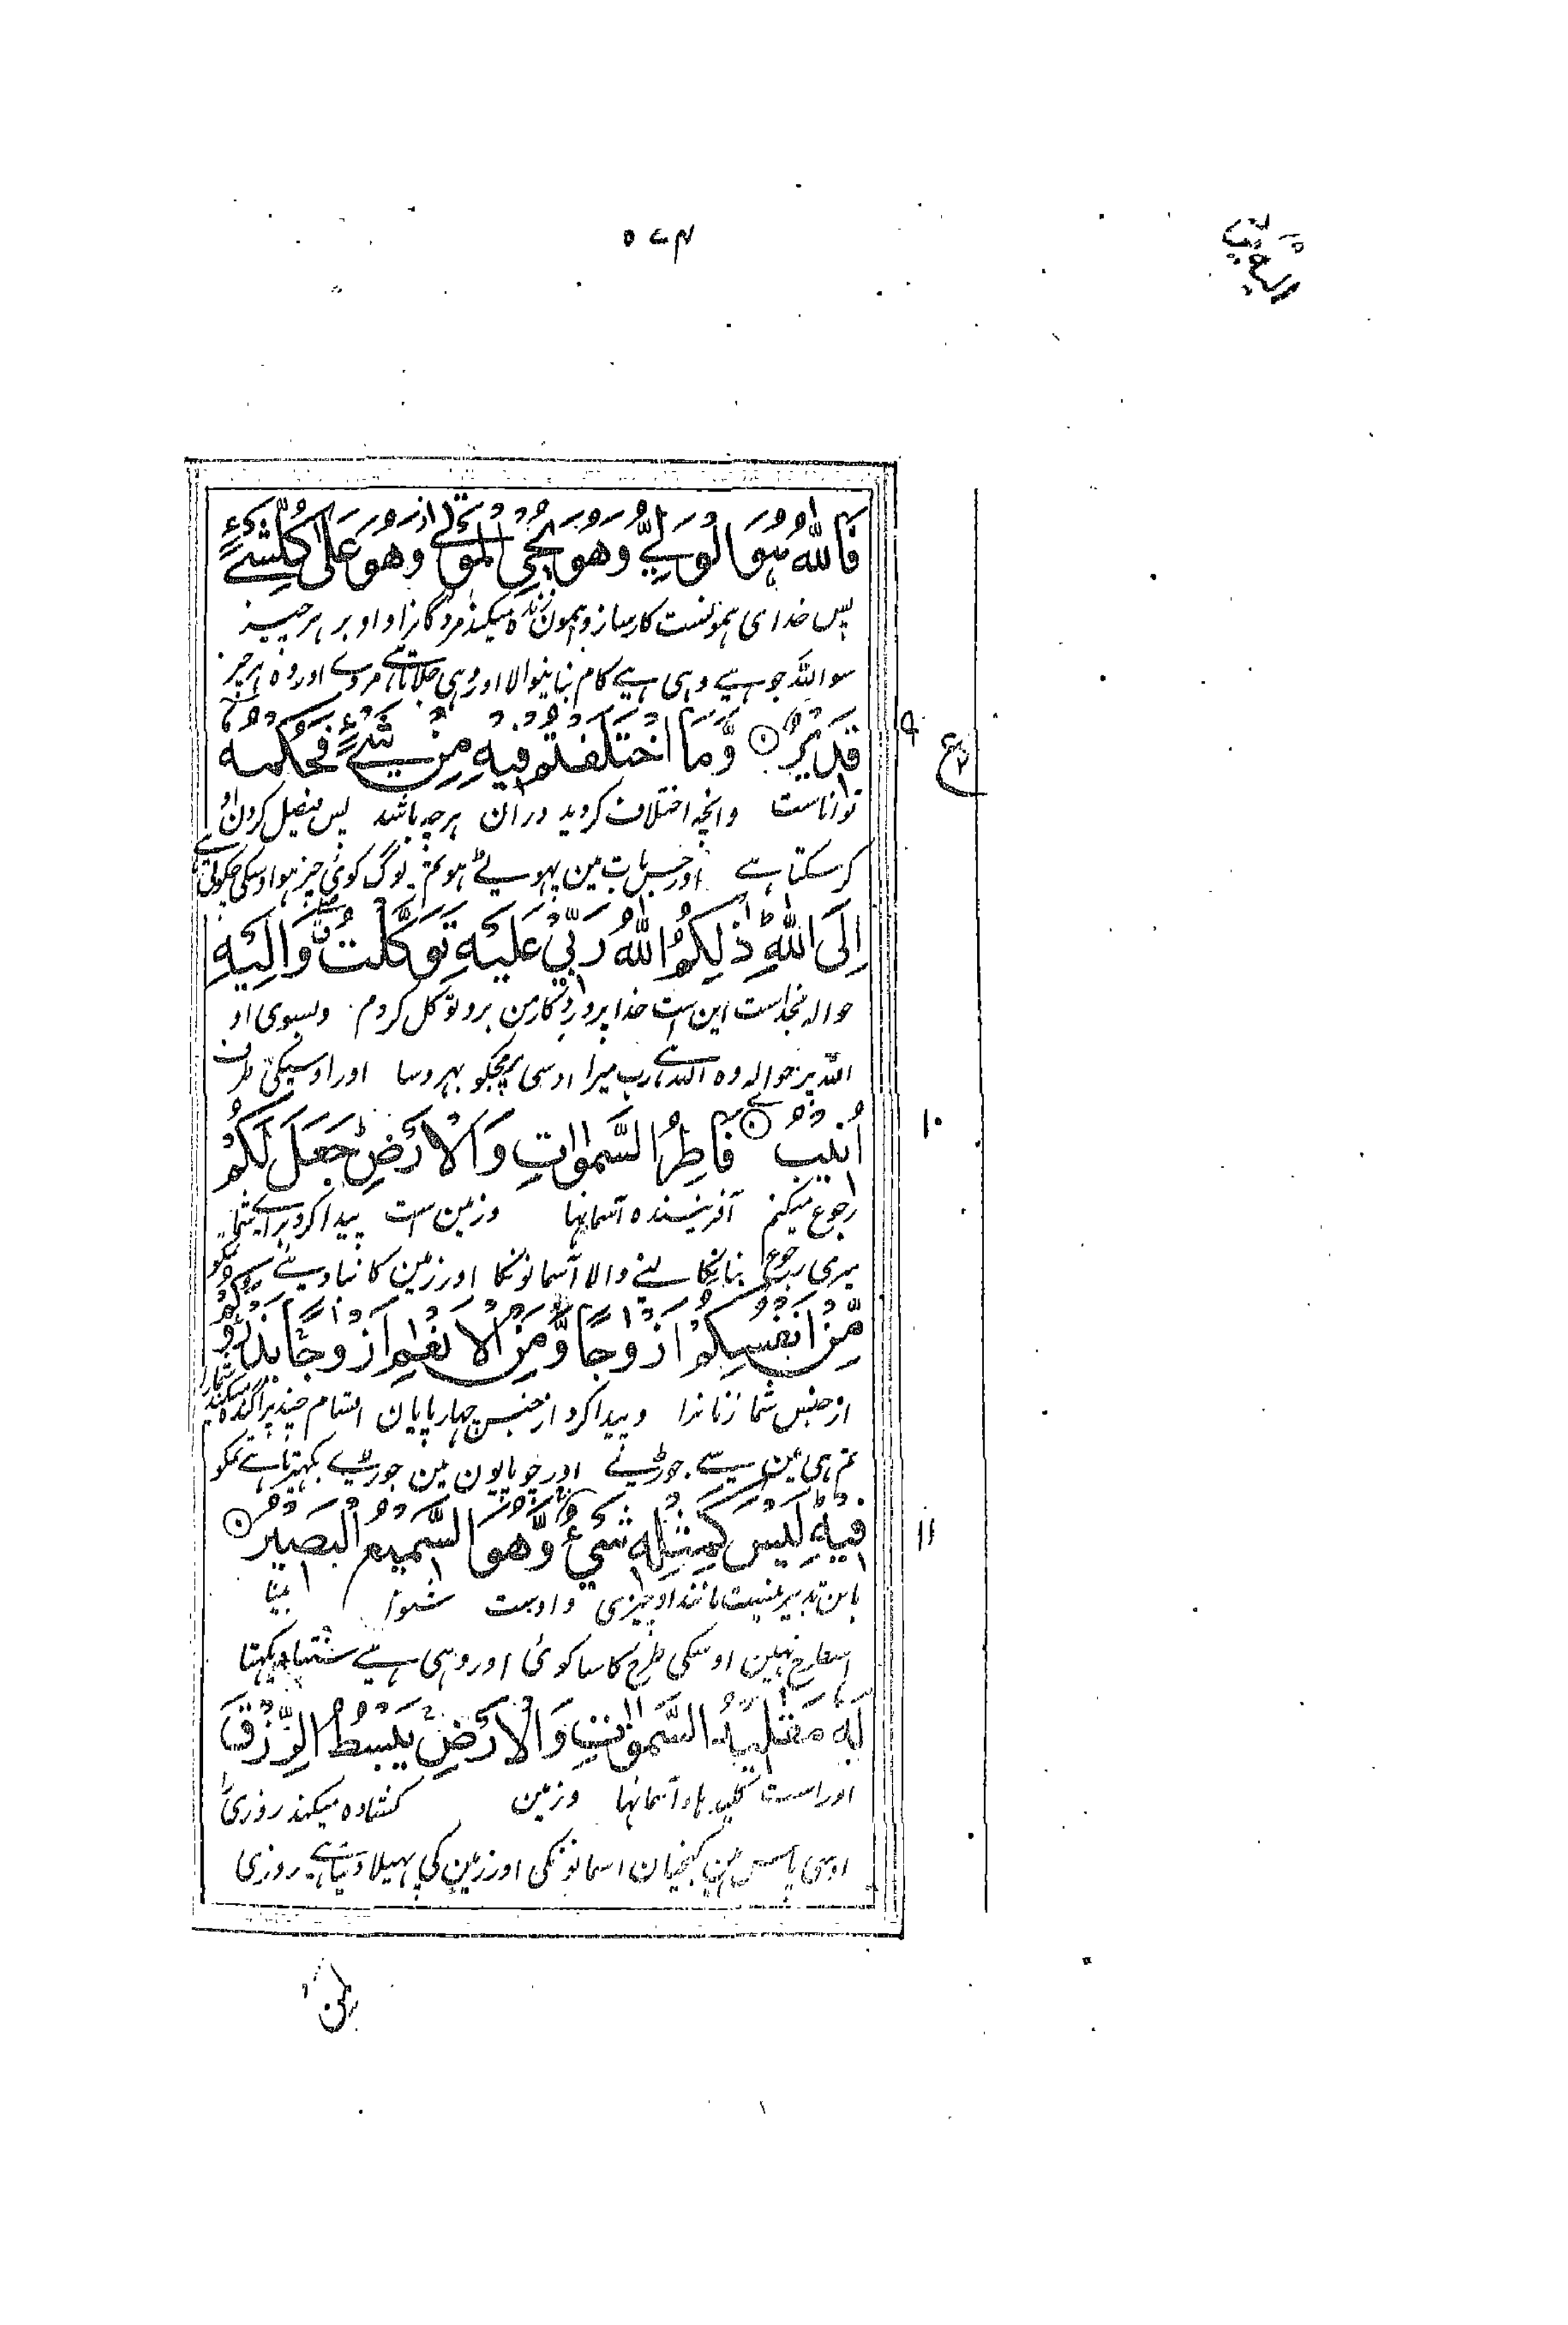 ۵۷۴
فَاللّٰهُ هُوَ الْوَلِيُّ وَهُوَ يُحْيِ الْمَوْتٰى وَهُوَ عَلٰى كُلِّ شَيْءٍ
پس خدای ہمونست کارساز و ہمون زندہ میکند مردگانرا و او بر ہر چیز
سو اللہ جو ہے وہی ہے کام بنانیوالا اور وہی جلاتا ہے مردے اور وہ ہر چیز
قَدِيْرٌ وَمَا اخْتَلَفْتُمْ فِيْهِ مِنْ شَيْءٍ فَحُكْمُهٗ
۹
ع
توانا است وانچہ اختلاف کردید دران ہرچہ باشد پس فیصل کردن او
کر سکتا ہے اور جس بات مین پہوٹے ہو تم لوگ کوئی چیز ہو اوسکی چکوتی ہے
اِلَى اللّٰهِ ذٰلِكُمُ اللّٰهُ رَبِّيْ عَلَيْهِ تَوَكَّلْتُ وَاِلَيْهِ
حوالہ بخداست این است خدا پروردگار من برو توکل کردم وبسوی او
اللہ پر حوالہ وہ اللہ ہے رب میرا اوسی پر مجکو بہروسا اور اوسیکی طرف
اُنِيْبُ فَاطِرُ السَّمٰوٰتِ وَالْاَرْضِ جَعَلَ لَكُمْ
۱۰
رجوع میکنم آفریننده آسمانہا وزمین است پیدا کرد برای شما
میری رجوع بنا نکالنے والا آسمانونکا اور زمین کا بنا دیئے تمکو
مِّنْ اَنْفُسِكُمْ اَزْوَاجًا وَّمِنَ الْاَنْعَامِ اَزْوَاجًا يَذْرَؤُكُمْ
از جنس شما زنانرا و پیدا کرد از جنس چہارپایان اقسام چند پراگندہ میکند شمارا
تم ہی مین سے جوڑے اور چوپایون مین جوڑے بکہیرتا ہے تمکو
فِيْهِ لَيْسَ كَمِثْلِهٖ شَيْءٌ وَهُوَ السَّمِيْعُ الْبَصِيْرُ
۱۱
باین تدبیر نیست مانند او چیزی و اوست شنوا بینا
اسطرح نہین اوسکی طرح کا سا کوئی اور وہی ہے سنتا دیکہتا
لَهٗ مَقَالِيْدُ السَّمٰوٰتِ وَالْاَرْضِ يَبْسُطُ الرِّزْقَ
اوراست کلید ہاء آسمانہا وزمین کشادہ میکند روزی را
اوسی پاس ہین کنجیان اسمانونکی اور زمین کی پہیلا دیتا ہے روزی